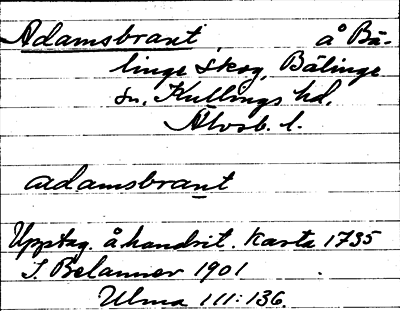 Adamsbrant å Bä-
linge skog, Bälinge
sn. Kullings hd.
Älvsb. l.
adamsbrant
Upptag. å handrit. karta 1735
I. Belanner 1901
Ulma 111:136.